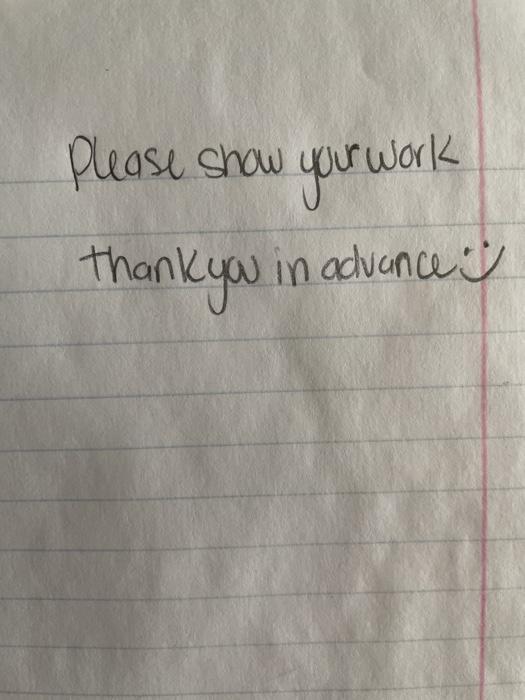 Please show your work
thank you in advance :)